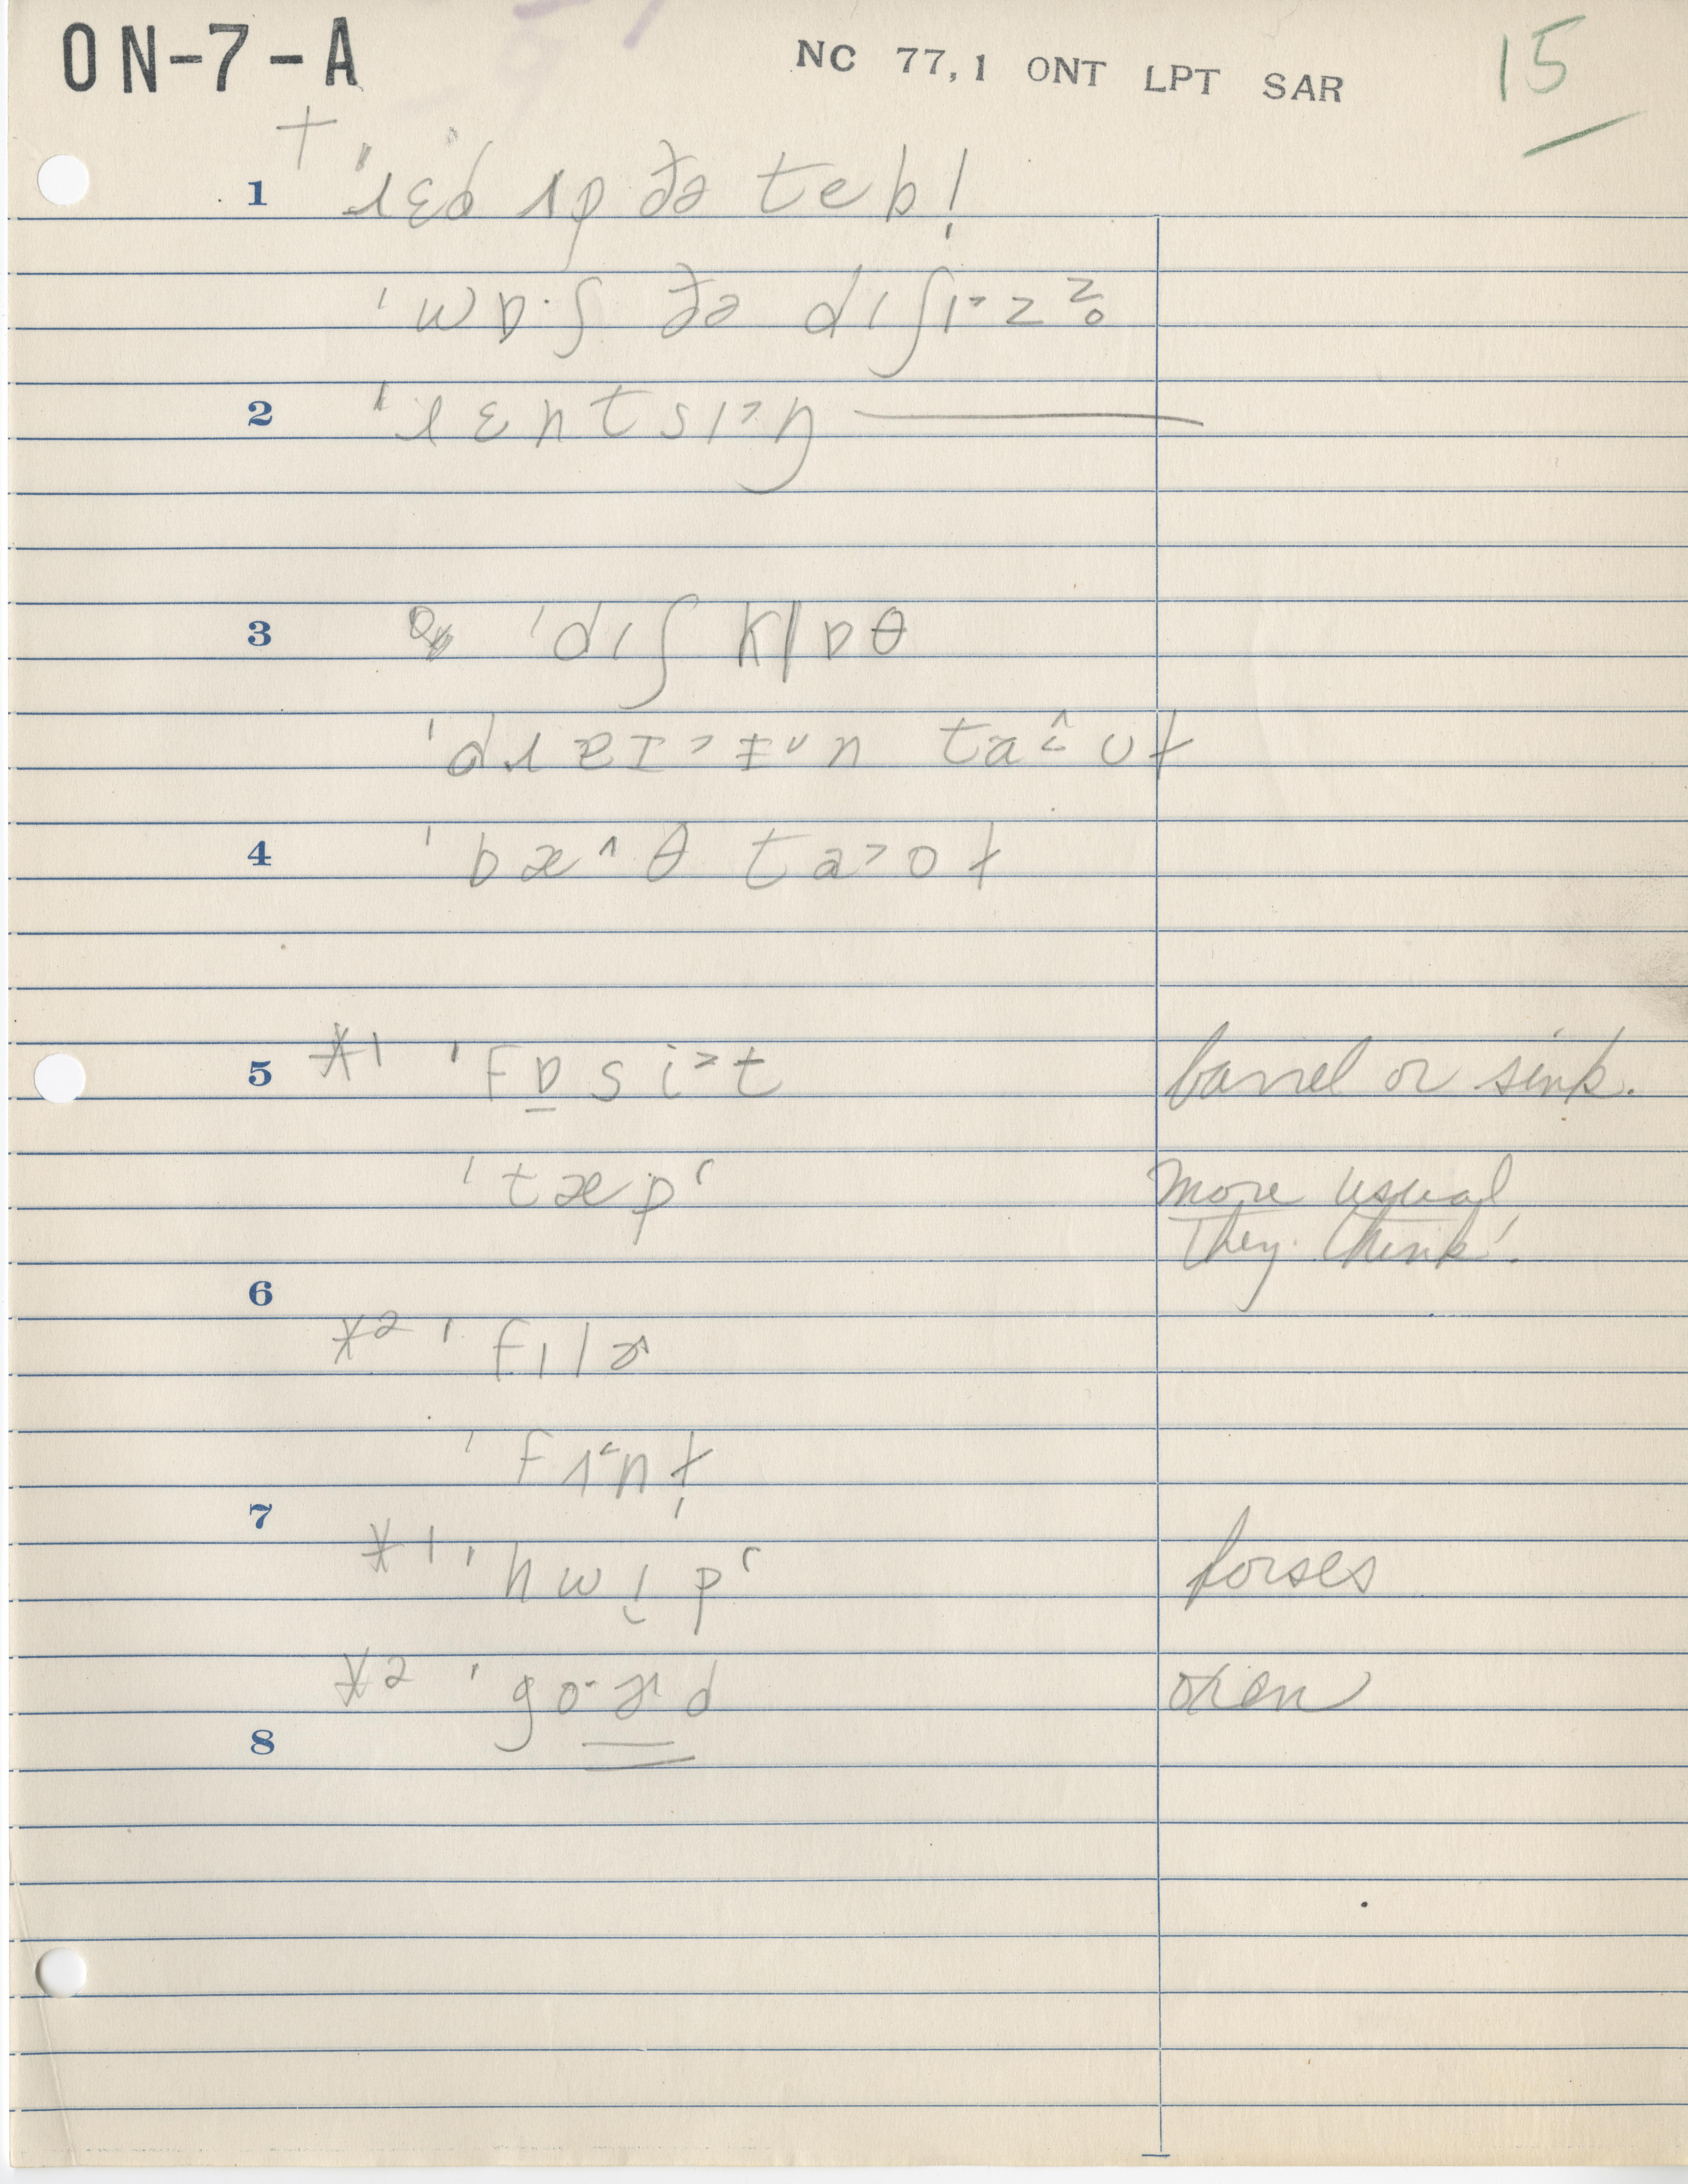 ON-7-A NC 77,1 ONT LPT SAR 15
1 ˈɹɛd ʌp ðə tebl̩
ˈwɒ·ʃ ðə dɪʃɪ˃zz̥
2 ˈɹɛntsɪ˃ŋ
3 ˈdɪʃ klɒθ
ˈdɹaɪ˃ɪ˅n ta^˂ʊɫ
4 ˈbæ^θ ta˃oɫ
5 *1 ˈfɒ̱si˃t barrel or sink.
ˈtæpʽ more usual
they think!
6
*2 ˈfɪlɚ
ˈfʌ˂nɫ̩
7
*1 ˈhwɪ̯pʽ horses
*2 ˈgo·ɚd oxen
8